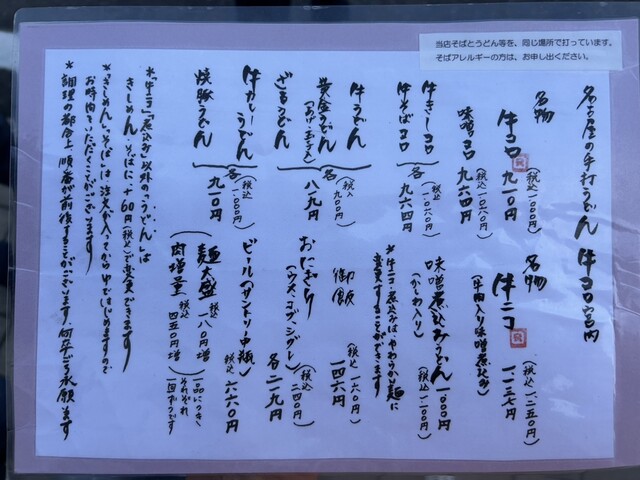 当店そばとうどん等を、同じ場所で打っています。
そばアレルギーの方は、お申し出ください。
名古屋の手打うどん 牛コロ宮内
名物 牛コロ (税込一〇〇〇円) 九一〇円
名物 牛ニコ (税込一、二五〇円) 一、一三七円
(牛肉入り味噌煮込み)
味噌コロ (税込一〇六〇円) 九六四円
味噌煮込みうどん (税込一、一〇〇円) 一、〇〇〇円
(かしわ入り)
*牛ニコ・煮込みはやわらかい麺に
変更することができます
牛きしコロ
牛そばコロ
各 (税込一〇六〇円) 九六四円
牛うどん
黄金うどん
ざるうどん
各 (税込九〇〇円) 八一九円
御飯 (税込一六〇円) 一四六円
おにぎり (税込二四〇円) 各二一九円
(ウメ、コブ、シグレ)
牛カレーうどん
焼豚うどん
各 (税込一、〇〇〇円) 九一〇円
ビール(サントリー中瓶) 税込六六〇円
麺大盛 税込一八〇円増
肉増量 税込四五〇円増
一品につき
それぞれ
一回ずつです
*「牛ニコ」「煮込み」以外の「うどん」は
きしめん・そばに+60円(税込)で変更できます
*「きしめん」「そば」は、注文が入ってから
お時間をいただくことがございます
*調理の都合上、順番が前後することがございます。何卒ご了承願います